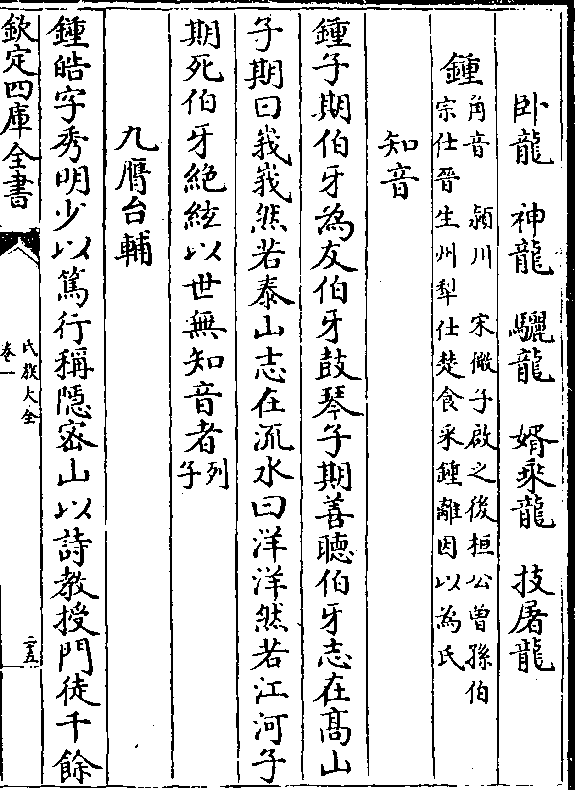 卧龍　神龍　驪龍　婿乘龍　技屠龍
鍾　角音　潁川　宋微子啟之後桓公曾孫伯
宗仕晉生州犁仕楚食采鍾離因以為氏
知音
鍾子期伯牙為友伯牙鼓琴子期善聽伯牙志在髙山
子期曰峩峩然若泰山志在流水曰洋洋然若江河子
期死伯牙絶絃以世無知音者列子
九膺台輔
鍾皓字秀明少以篤行稱隠宻山以詩教授門徒千餘
欽定四庫全書
氏族大全
卷一
二五